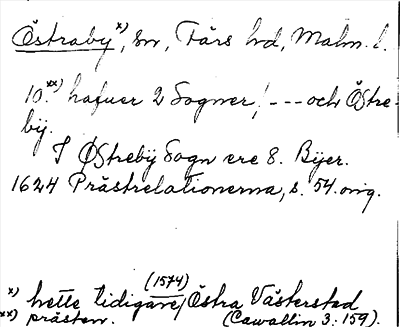 Östraby x), sn, Färs hd, Malm. l.
10. xx) hafuer 2 Sogner, ! --- och Östre-
bÿ.
I Østrebÿ Sogn ere 8. Bÿer.
1624 Prästrelationerna, s. 54. orig.
(1574)
x) hette tidigare, Östra Västerstad
xx) prästen. (Cawallin 3: 159).